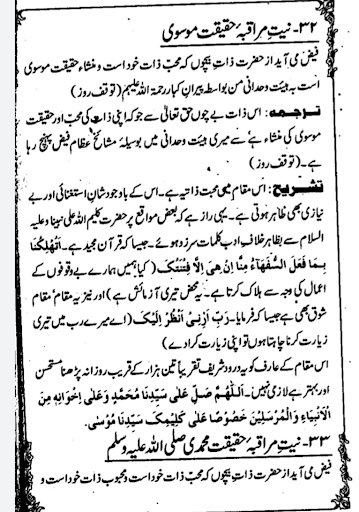 ۳۲- نیتِ مراقبہ حقیقت موسوی
فیض می آید از حضرت ذاتِ بیچوں کہ محبّ ذات خود است و منشاء حقیقت موسوی
است بہ ہیئت وحدانی من بواسطہ پیرانِ کبار رحمۃ اللہ علیہم (توقف روز)
ترجمہ: اس ذات بے چوں حق تعالیٰ سے جو کہ اپنی ذات کی محبّ اور حقیقت
موسوی کی منشاء ہے سے میری ہیئت وحدانی میں بوسیلہ مشائخ عظام فیض پہنچ رہا
ہے۔ (توقف روز)
تشریح: اس مقام میں محبت ذاتیہ ہے۔ اس کے باوجود شانِ استغنائی اور بے
نیازی بھی ظاہر ہوتی ہے۔ یہی راز ہے کہ بعض مواقع پر حضرت کلیم اللہ علی نبینا وعلیہ
السلام سے بظاہر خلافِ ادب کلمات سرزد ہوئے۔ جیسا کہ قرآن مجید ہے۔ اَتُهْلِكُنَا
بِمَا فَعَلَ السُّفَهَاءُ مِنَّا اِنْ هِیَ اِلَّا فِتْنَتُكَ (کیا ہمیں ہمارے بے وقوفوں کے
اعمال کی وجہ سے ہلاک کرتا ہے۔ یہ محض تیری آزمائش ہے) اور نیز یہ مقام مقام
شوق بھی ہے جیسا کہ فرمایا۔ رَبِّ اَرِنِیْ اَنْظُرْ اِلَیْكَ (اے میرے رب میں تیری
زیارت کرنا چاہتا ہوں تو اپنی زیارت کرا دے)
اس مقام کے عارف کو یہ درود شریف تقریباً تین ہزار کے قریب روزانہ پڑھنا مستحسن
اور بہتر ہے لازمی نہیں۔ اَللّٰهُمَّ صَلِّ عَلٰی سَیِّدِنَا مُحَمَّدٍ وَعَلٰی اِخْوَانِهٖ مِنَ
الْاَنْبِیَاءِ وَالْمُرْسَلِیْنَ خُصُوْصًا عَلٰی كَلِیْمِكَ سَیِّدِنَا مُوْسٰی۔
۳۳- نیتِ مراقبہ حقیقت محمدی صلی اللہ علیہ وسلم
فیض می آید از حضرت ذات بیچوں کہ محبّ ذات خود است و محبوب ذات خود است و